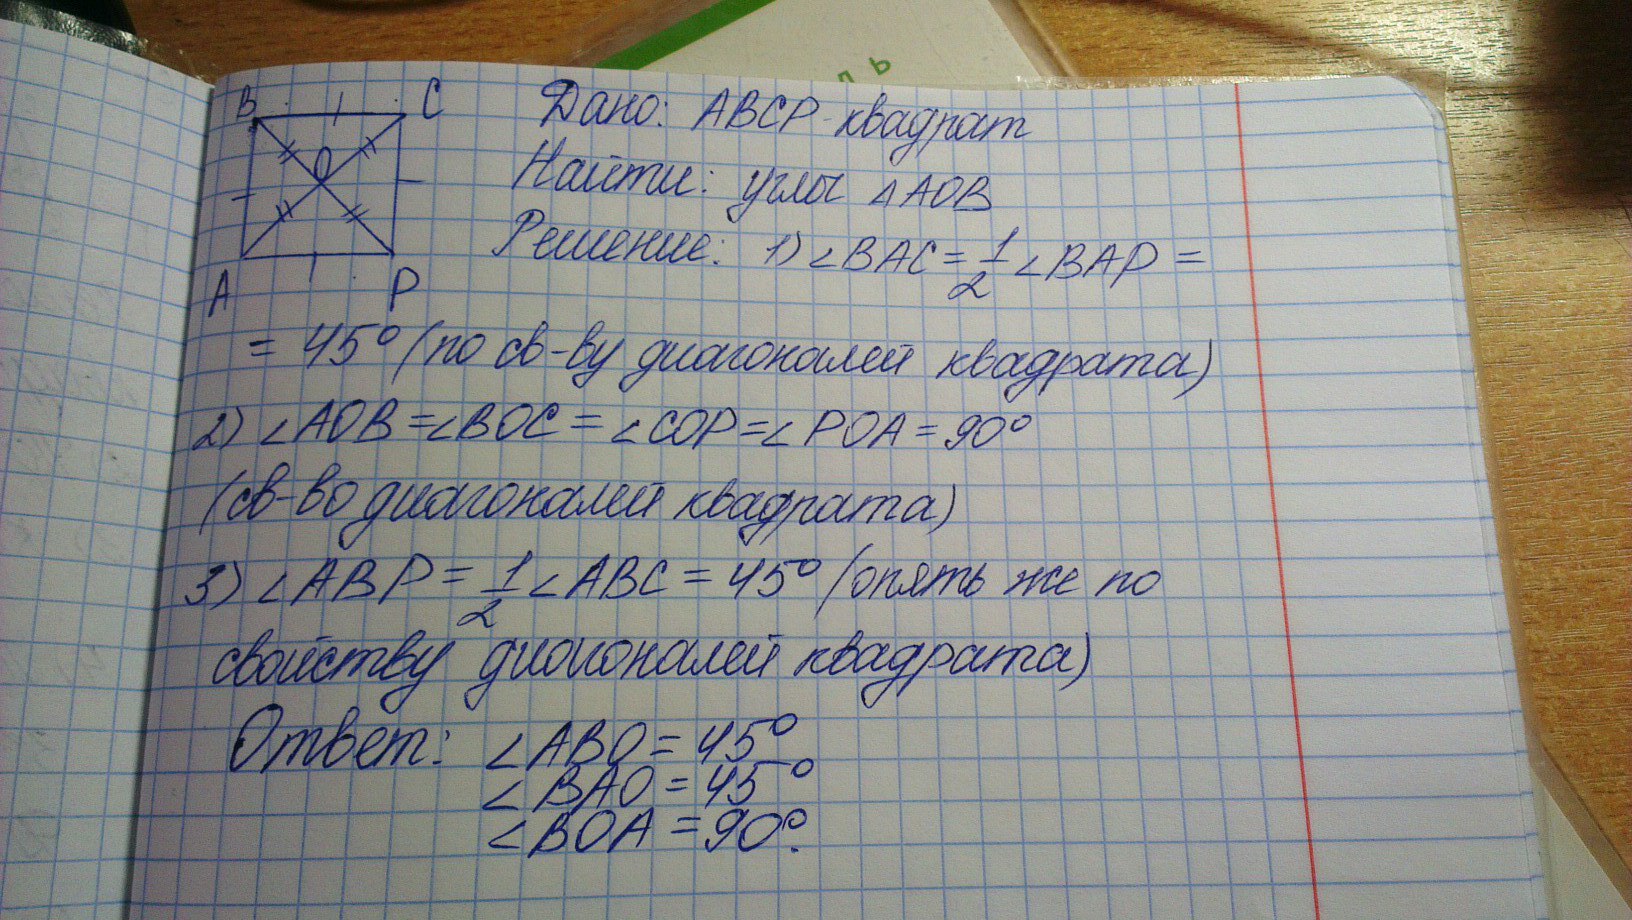 B C
O
A P
Дано: ABCP - квадрат
Найти: углы △AOB
Решение: 1) ∠BAC = 1/2 ∠BAP =
= 45° (по св-ву диагоналей квадрата)
2) ∠AOB = ∠BOC = ∠COP = ∠POA = 90°
(св-во диагоналей квадрата)
3) ∠ABP = 1/2 ∠ABC = 45° (опять же по
свойству диагоналей квадрата)
Ответ: ∠ABO = 45°
∠BAO = 45°
∠BOA = 90°.